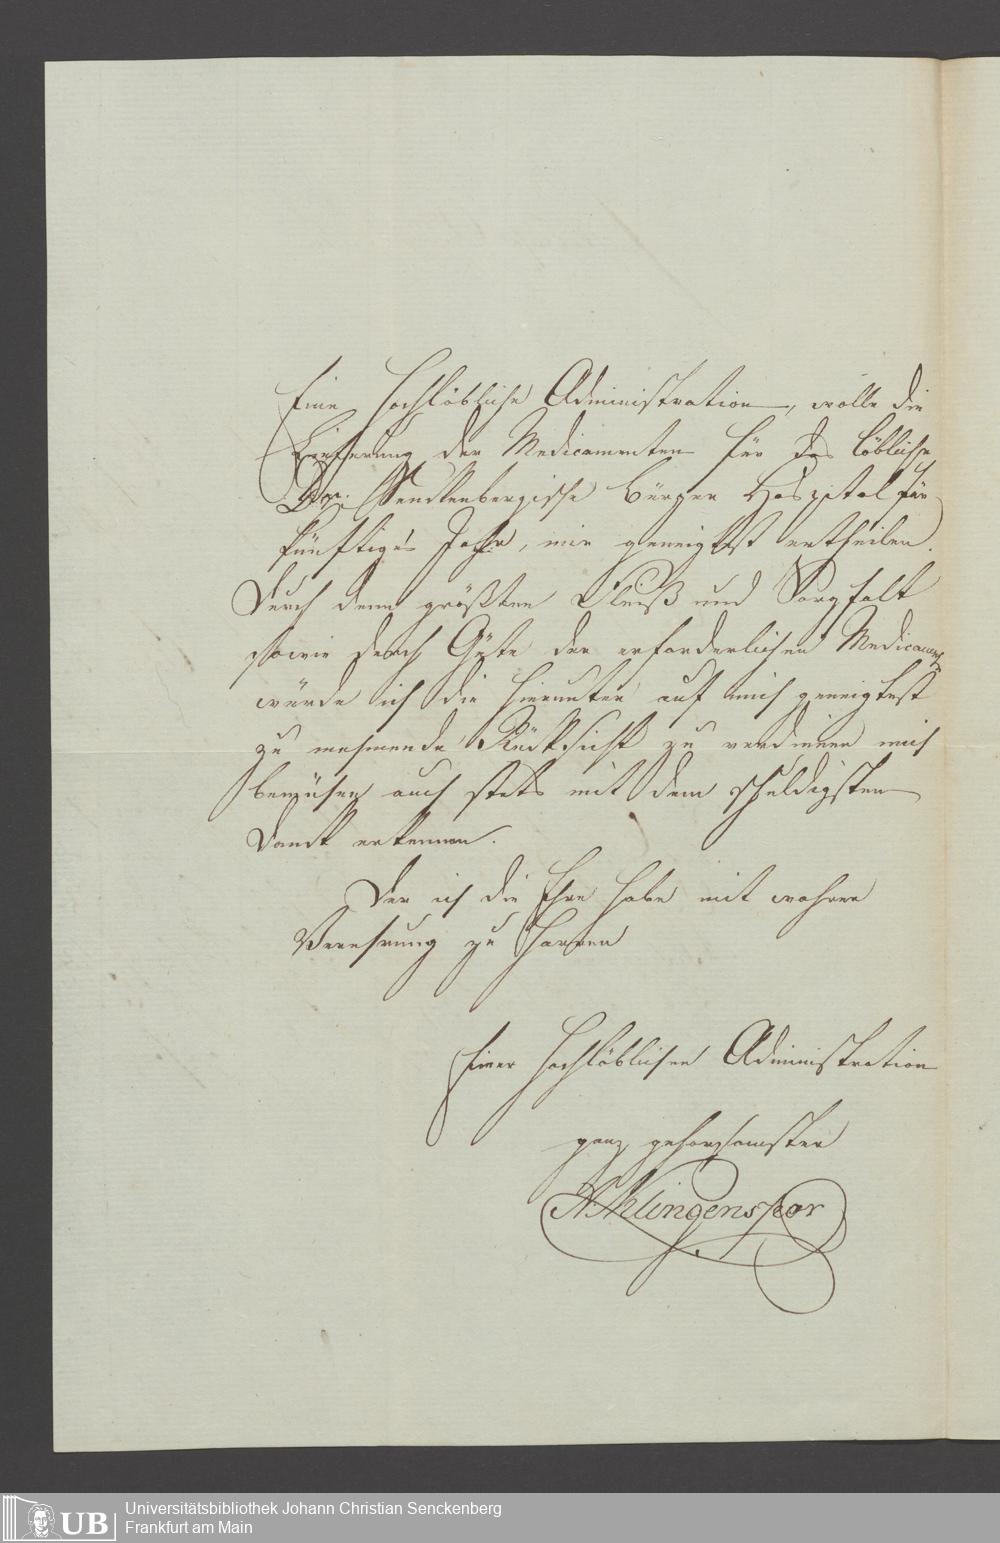 Eine Hochlöbliche Administration, wolle die
Lieferung der Medicamenten für das löbliche
Dr. Senckenbergische Bürger Hospital für
künftiges Jahr, mir geneigtest ertheilen.
Durch denn größten Fleiß und Sorgfalt
sowie durch Güte der erforderlichen Medicament
würde ich die hierunter auf mich geneigtest
zu nehmende Rücksicht zu verdienen mich
bemühen auch stets mit dem schuldigsten
Danck erkennen.
Der ich die Ehre habe mit wahrer
Verehrung zu harren
Einer Hochlöblichen Administration
ganz gehorsamster
Klingenspor
UB
Universitätsbibliothek Johann Christian Senckenberg
Frankfurt am Main